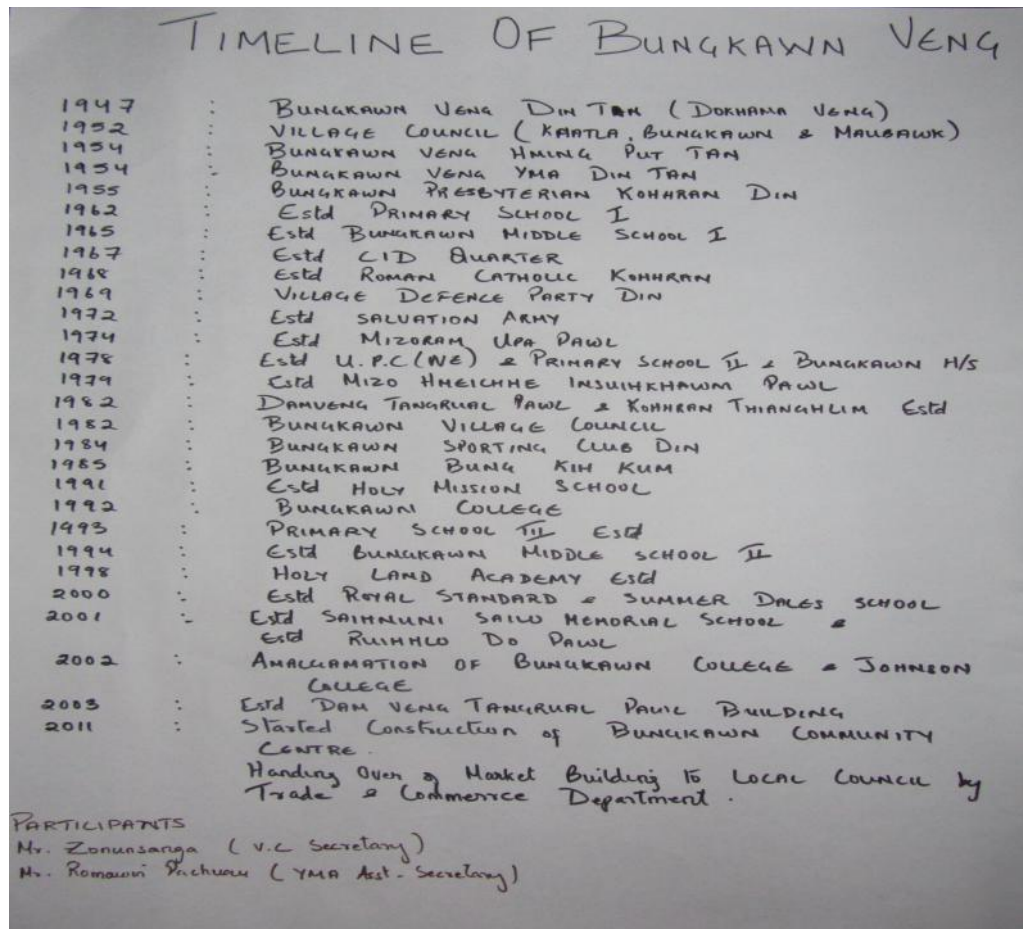 TIMELINE OF BUNGKAWN VENG
1947 : BUNGKAWN VENG DIN TAN (DOKHAMA VENG)
1952 : VILLAGE COUNCIL (KHATLA, BUNGKAWN & MAUBAWK)
1954 : BUNGKAWN VENG HMING PUT TAN
1954 : BUNGKAWN VENG YMA DIN TAN
1955 : BUNGKAWN PRESBYTERIAN KOHHRAN DIN
1962 : Estd PRIMARY SCHOOL I
1965 : Estd BUNGKAWN MIDDLE SCHOOL I
1967 : Estd CID QUARTER
1968 : Estd ROMAN CATHOLIC KOHHRAN
1969 : VILLAGE DEFENCE PARTY DIN
1972 : Estd SALVATION ARMY
1974 : Estd MIZORAM UPA PAWL
1978 : Estd U.P.C (NE) & PRIMARY SCHOOL II & BUNGKAWN H/S
1979 : Estd MIZO HMEICHHE INSUIHKHAWM PAWL
1982 : DAMVENG TANGRUAL PAWL & KOHHRAN THIANGHLIM Estd
1982 : BUNGKAWN VILLAGE COUNCIL
1984 : BUNGKAWN SPORTING CLUB DIN
1985 : BUNGKAWN BUNG KIH KUM
1991 : Estd HOLY MISSION SCHOOL
1992 : BUNGKAWN COLLEGE
1993 : PRIMARY SCHOOL III Estd
1994 : Estd BUNGKAWN MIDDLE SCHOOL II
1998 : HOLY LAND ACADEMY Estd
2000 : Estd ROYAL STANDARD & SUMMER DALES SCHOOL
2001 : Estd SAIHNUNI SAILO MEMORIAL SCHOOL &
Estd RUIHHLO DO PAWL
2002 : AMALGAMATION OF BUNGKAWN COLLEGE & JOHNSON
COLLEGE
2003 : Estd DAM VENG TANGRUAL PAWL BUILDING
2011 : Started Construction of BUNGKAWN COMMUNITY
CENTRE.
Handing Over of Market Building to LOCAL COUNCIL by
Trade & Commerrce Department.
PARTICIPANTS
Mr. Zonunsanga (V.C Secretary)
Mr. Romawii Pachuau (YMA Asst. Secretary)